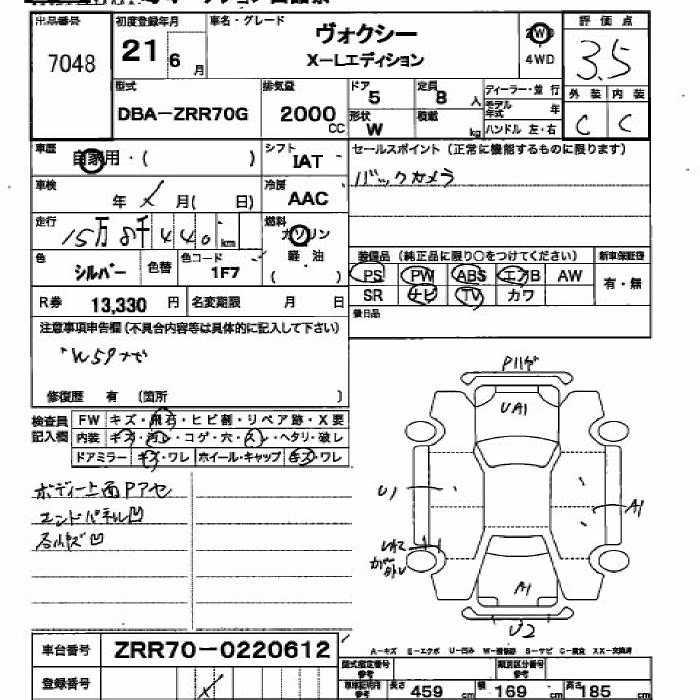 出品番号 初度登録年月 車名・グレード 評価点
7048 21 6月 ヴォクシー X-Lエディション 2WD 4WD 3.5
型式 排気量 ドア 定員 ディーラー・並行 外装 内装
DBA-ZRR70G 2000CC 5 8人 モデル年式 年 C C
形状 積載 ハンドル 左・右
W kg
車歴 自家用・( ) シフト IAT セールスポイント (正常に機能するものに限ります)
バックカメラ
車検 年 月( 日) 冷房 AAC
走行 15万8千440km 燃料 ガソリン 軽油 ( )
色 シルバー 色替 色コード 1F7
装備品 (純正品に限り○をつけてください) 新車保証書
PS PW ABS エアB AW 有・無
SR ナビ TV カワ
R券 13,330円 名変期限 月 日
後日品
注意事項申告欄(不具合内容等は具体的に記入して下さい)
修復歴 有 (箇所 )
検査員記入欄 FW キズ・飛石・ヒビ割・リペア跡・X要
内装 キズ・汚レ・コゲ・穴・スレ・ヘタリ・破レ
ドアミラー キズ・ワレ ホイール・キャップ キズ・ワレ
ボディー上面Pアセ
エンドパネル凹
UA1
U1
A1
A1
U2
車台番号 ZRR70-0220612
A-キズ E-エクボ U-凹み W-補修跡 S-サビ C-腐食 XX-交換済
登録番号
型式指定番号 参考 類別区分番号 参考
長さ 459cm 幅 169cm 高さ 185cm